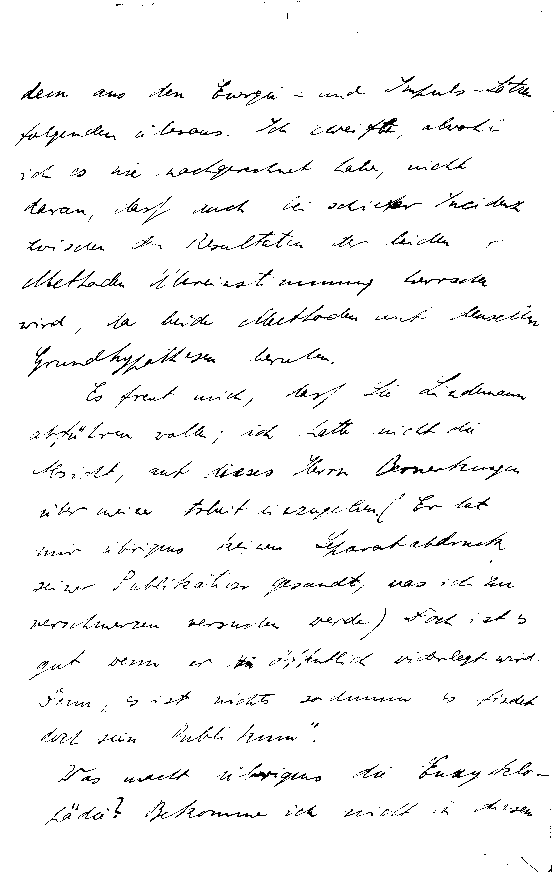 dem aus den Energie- und Impuls-Sätzen
folgenden überaus. Ich zweifle, obwohl
ich es nie nachgerechnet habe, nicht
daran, daß auch bei schiefer Incidenz
zwischen den Resultaten der beiden
Methoden Übereinstimmung herrschen
wird, da beide Methoden auf denselben
Grundhypothesen beruhen.
Es freut mich, daß Sie Lindemann
abführen wollen; ich hatte nicht die
Absicht, auf dieses Herrn Bemerkungen
über meine Arbeit einzugehen (Er hat
mir übrigens keinen Separatabdruck
seiner Publikation gesandt, was ich zu
verschmerzen versuchen werde) Doch ist es
gut wenn er öffentlich widerlegt wird.
Denn, "es ist nichts so dumm es findet
doch sein Publikum".
Was macht übrigens die Encyklo-
pädie? Bekomme ich nicht in diesen